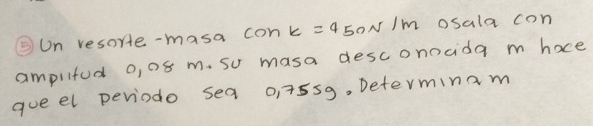 ⑤ Un resorte-masa con k = 450N/m osala con
amplitud 0,08 m. su masa desconocida m hace
que el periodo sea 0,75sg. Determina m